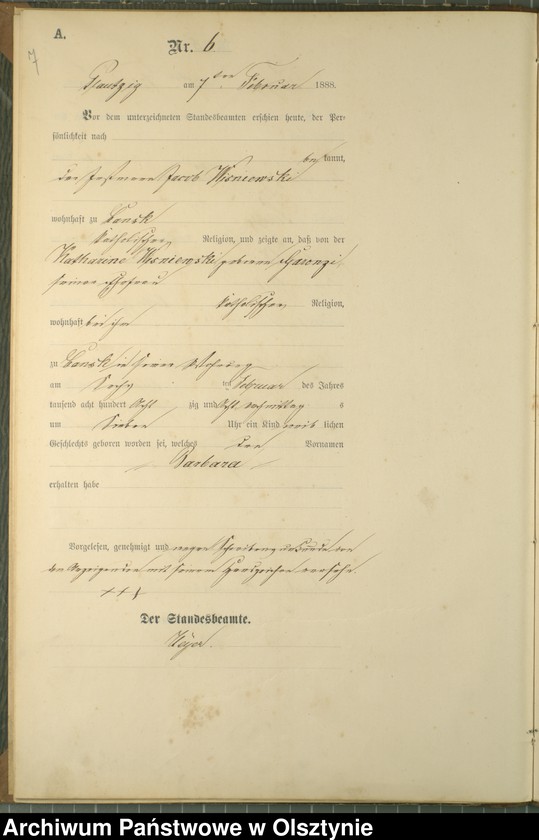 A.
7
Nr. 6
Plautzig am 7ten Februar 1888.
Vor dem unterzeichneten Standesbeamten erschien heute, der Per-
sönlichkeit nach
bekannt,
der Jacob Wisniewski
wohnhaft zu Lansk
katholischer Religion, und zeigte an, daß von der
Katharine Wisniewski geborene
seiner Ehefrau
katholischer Religion,
wohnhaft bei ihm
zu Lansk in seiner Wohnung
am ten Februar des Jahres
tausend acht hundert Acht zig und Acht Nachmittag s
um Sieben Uhr ein Kind weib lichen
Geschlechts geboren worden sei, welches den Vornamen
Barbara
erhalten habe
Vorgelesen, genehmigt und wegen Schreibensunkunde von
dem Anzeigenden mit seinem Handzeichen versehn.
+++
Der Standesbeamte.
Archiwum Państwowe w Olsztynie